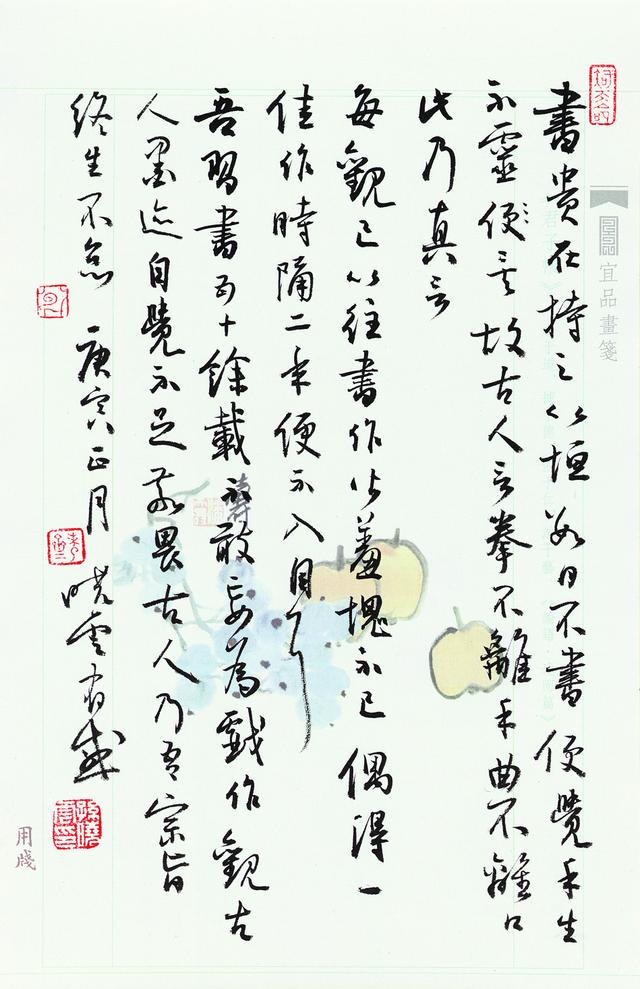 書貴在持之以恒數日不書便覺手生
不靈便矣故古人言拳不離手曲不離口
此乃真言
每觀已以往書作羞愧不已偶得一
佳作時隔二年便不入目了
吾習書五十餘載不敢妄為戲作觀古
人墨迹自覺不足敬畏古人乃吾宗旨
終生不怠 庚寅正月 曉雲有感
宜品畫箋
用牋